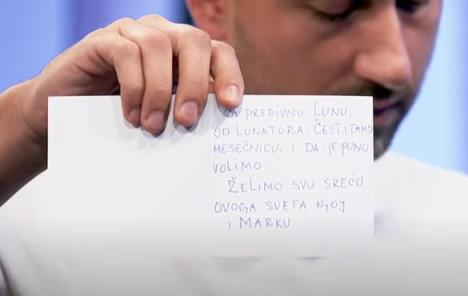 ZA PREDIVNU LUNU,
OD LUNATORA. ČESTITAMO
MESEČNICU, I DA JE PUNO
VOLIMO.
ŽELIMO SVU SREĆU
OVOGA SVETA NJOJ
I MARKU